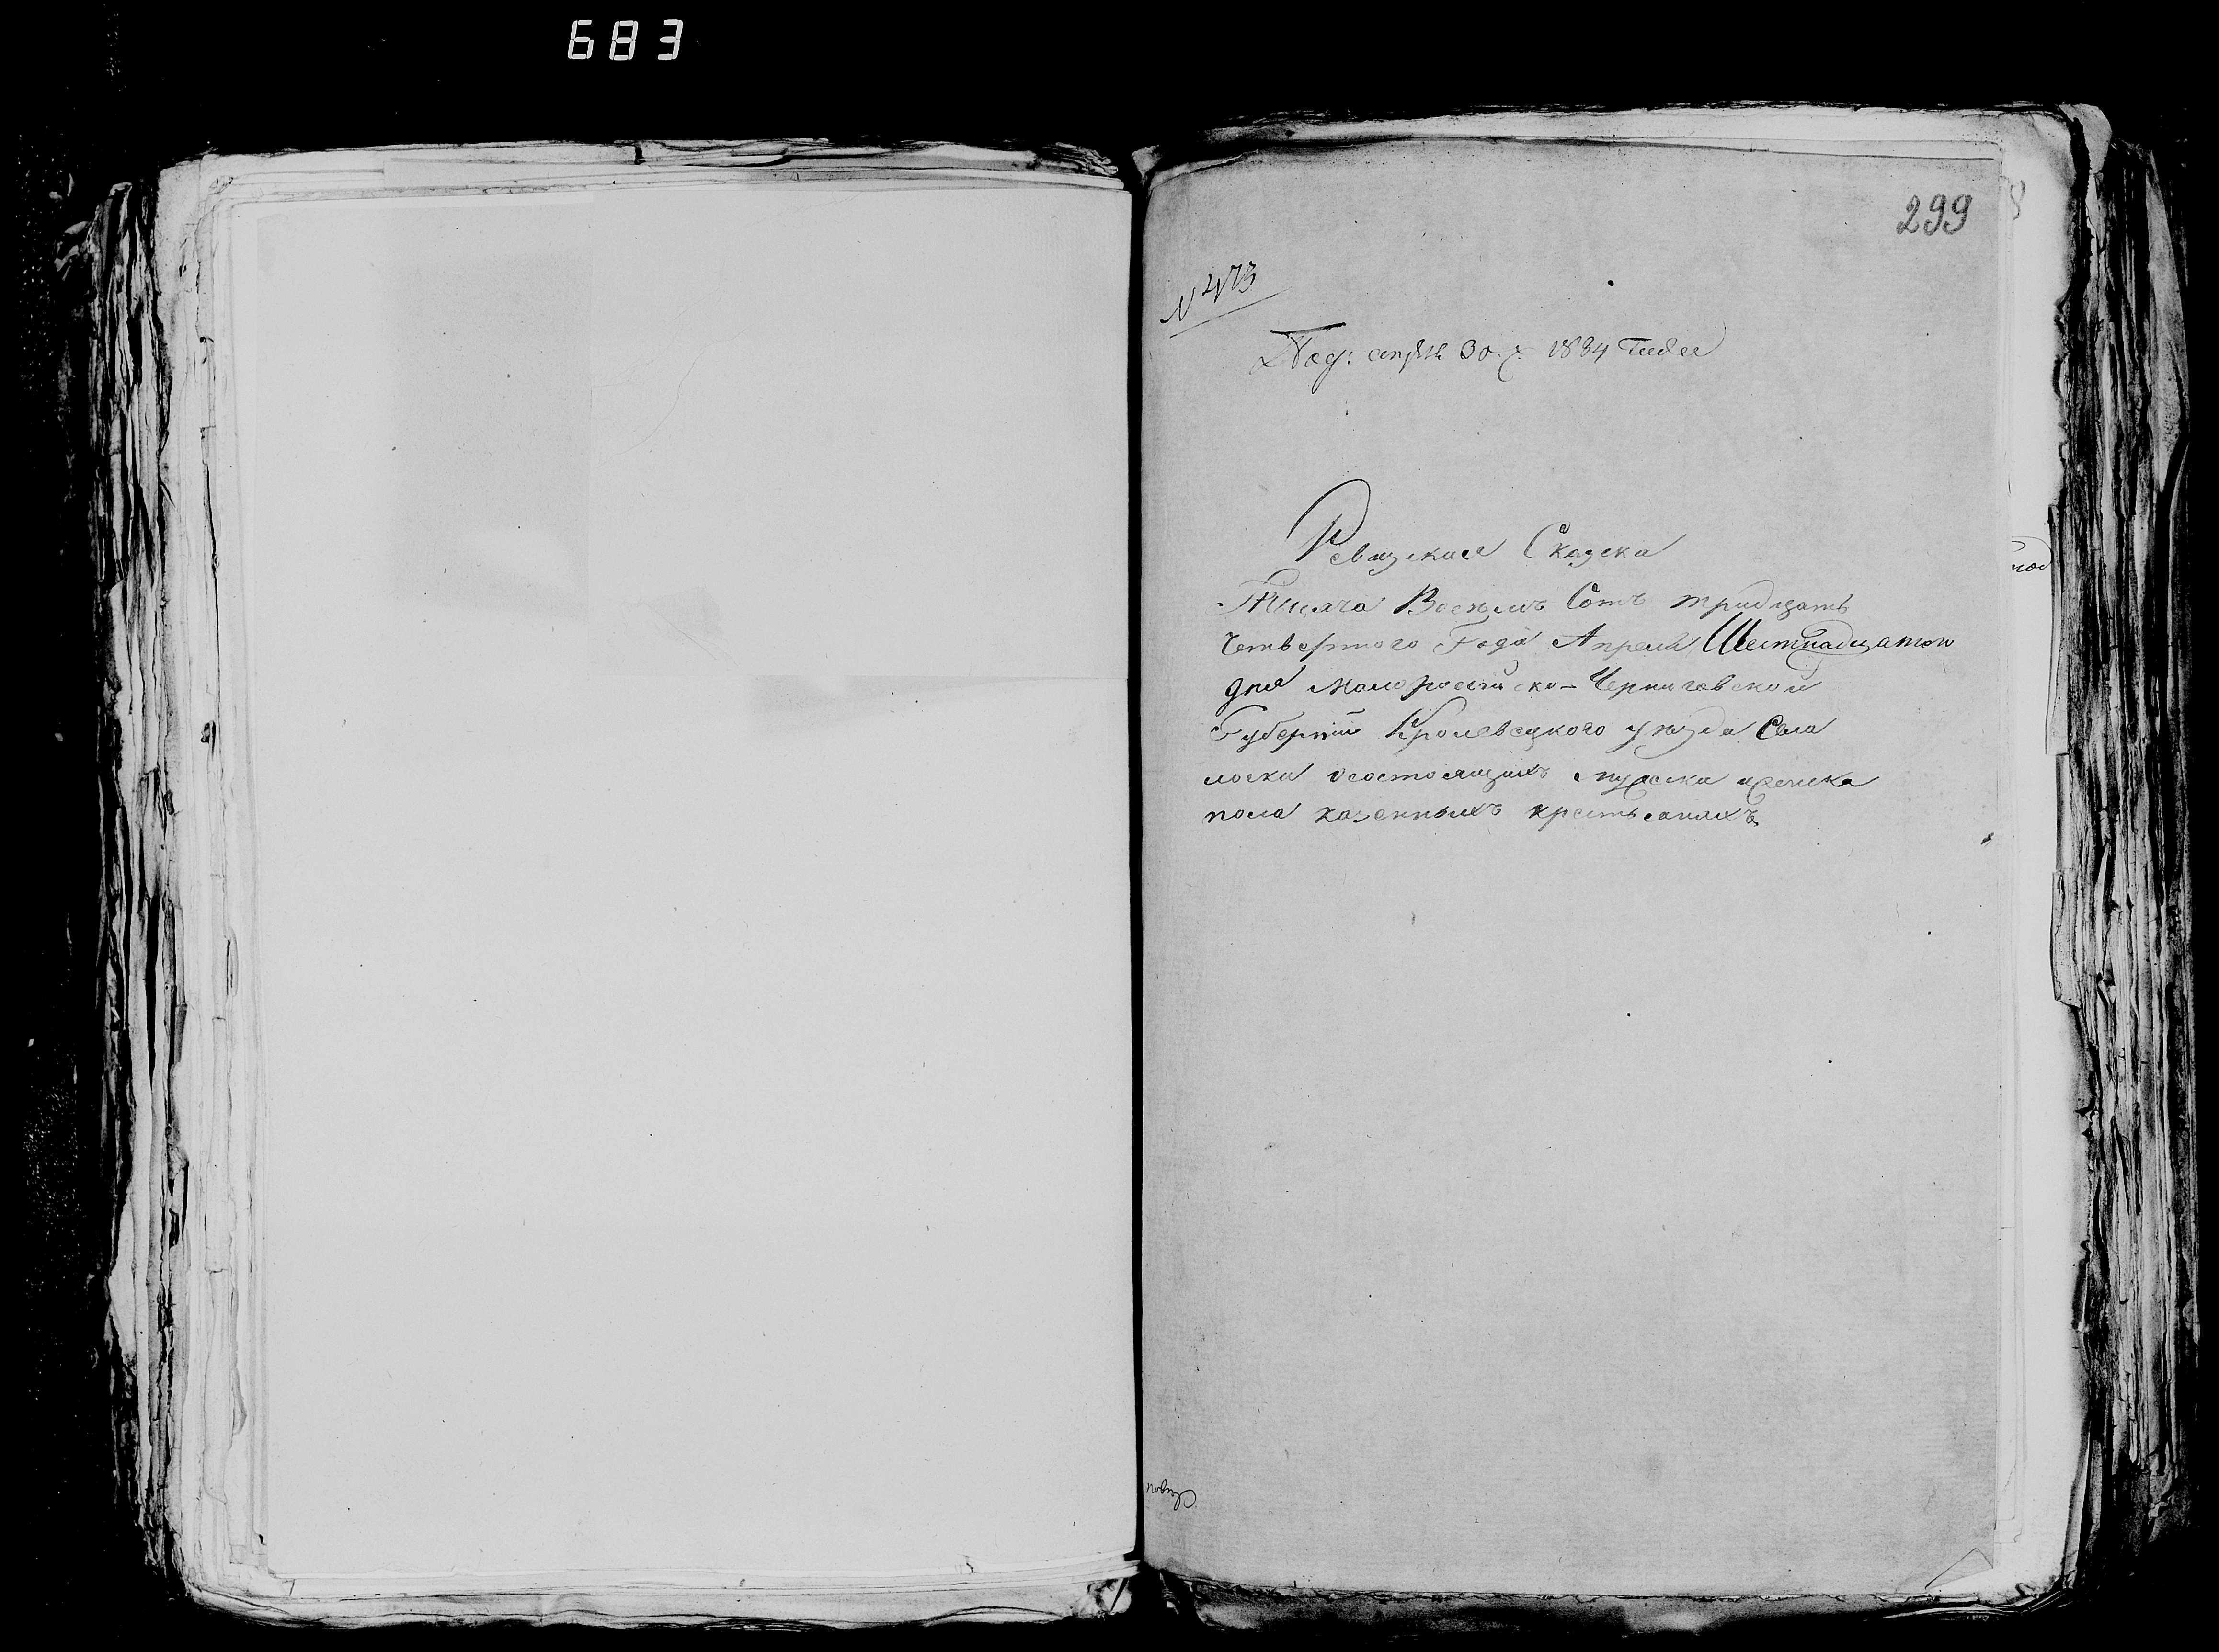 683
299
№ 473
Под: апрѣля 30 1834 Года
Ревизская Сказка
Тысяча Восемъ Сотъ тридцать
Четвертого Года Апреля Шестнадцатого
дня Малоросийско-Черниговской
Губернии Кролевецкого уезда Села
осостоящихъ мужска иженска
пола казенныхъ крестьянахъ